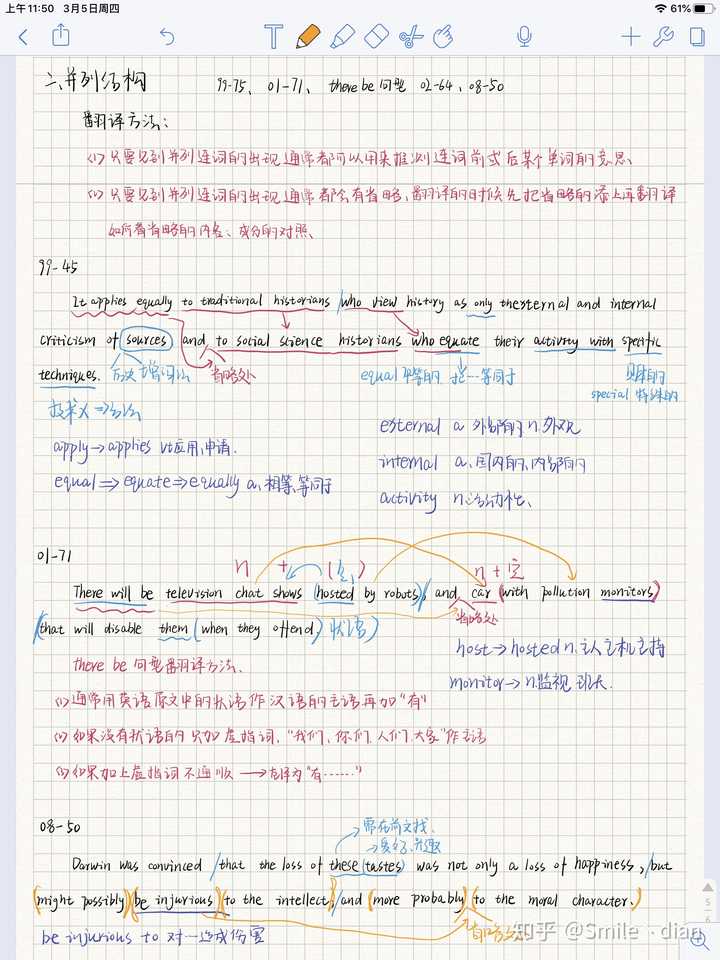 上午11:50 3月5日周四
61%
二、并列结构 99-75、01-71、there be 句型 02-64、08-50
翻译方法:
(1) 只要见到并列连词的出现,通常都可以用来推测连词前或后某个单词的意思、
(1) 只要见到并列连词的出现,通常都会有省略,翻译的时候先把省略的添上再翻译
如何看省略的内容:成分的对照、
99-45
It applies equally to traditional historians /who view history as only thesternal and internal
criticism of sources and to social science historians who equate their activity with specific
techniques. 方法 增词法 省略处 equal 平等的 把…等同于 具体的
special 特殊的
技术 X ⇒方法
esternal a 外部的 n.外观
apply→applies vt应用,申请.
internal a、国内的,内部的
equal⇒equate⇒equally a,相等,等同于
activity n.活动性、
01-71
n + (定) n + 定
There will be television chat shows (hosted by robots)/, and car (with pollution monitors)
省略处
(that will disable them (when they offend) 状语)
host→hosted n.主人主机主持
there be 句型翻译方法、
monitor→n.监视 班长.
(1) 通常用英语原文中的状语作汉语的主语再加“有”
(1) 如果没有状语的 只加虚指词,“我们、你们,人们,大家”作主语
(1) 如果加上虚指词不通顺 →译为“有……”
08-50
→需在前文找、
→爱好、兴趣
Darwin was convinced /that the loss of these (tastes) was not only a loss of happiness, /but
(might possibly) (be injurious) (to the intellect,)/and (more probably) (to the moral character.)
省略处
be injurious to 对一造成伤害
5
6
知乎 @Smile、dian